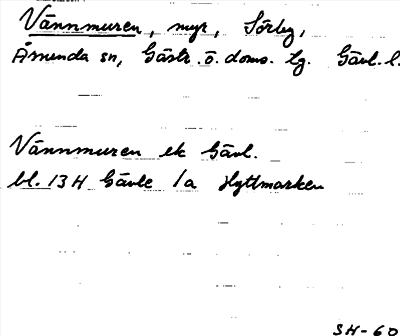 Vännmuren, myr, Sörby,
Åmunda sn, Gästr. ö. doms. tg. Gävl. l.
Vännmuren ek Gävl.
bl. 13 H Gävle 1a Hyttmarken
SH-60